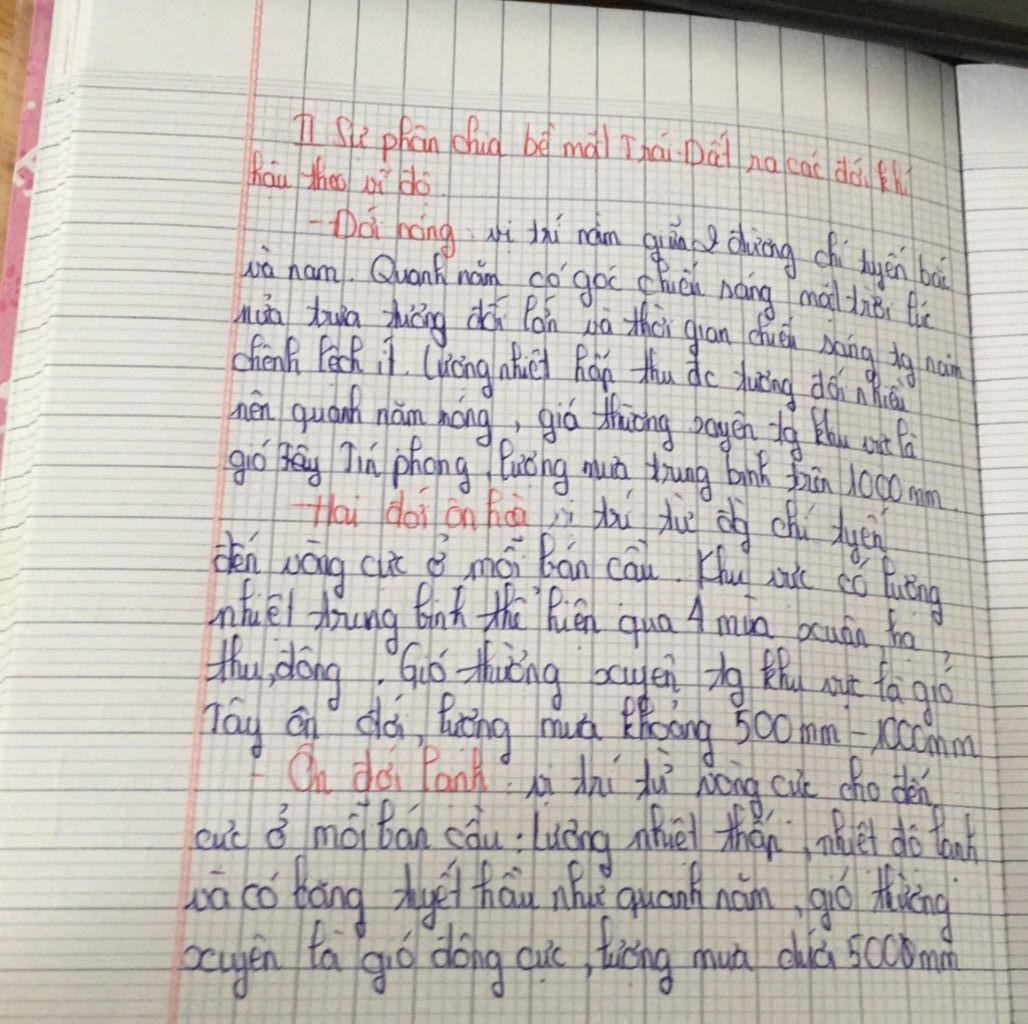 II Sự phân chia bề mặt Trái Đất ra các đới khí
hậu theo vĩ độ
- Đới nóng: vị trí nằm giữa 2 đường chí tuyến bắc
và nam. Quanh năm có góc chiếu sáng mặt trời lúc
giữa trưa tương đối lớn và thời gian chiếu sáng tg năm
chênh lệch ít. Lượng nhiệt hấp thu đc tương đối nhiều
nên quanh năm nóng, gió thường xuyên tg khu vực là
gió Tín phong, lượng mưa trung bình trên 1000mm.
- Hai đới ôn hoà vị trí từ đg chí tuyến
đến vòng cực ở mỗi bán cầu. Khu vực có lượng
nhiệt trung bình thể hiện qua 4 mùa xuân, hạ,
thu, đông. Gió thường xuyên tg khu vực là gió
Tây ôn đới, lượng mưa khoảng 500mm - 1000mm
- Ôn đới lạnh: vị trí từ vòng cực cho đến
cực ở mỗi bán cầu: Lượng nhiệt thấp, nhiệt độ lạnh
và có băng tuyết hầu như quanh năm, gió thường
xuyên là gió đông cực, lượng mưa dưới